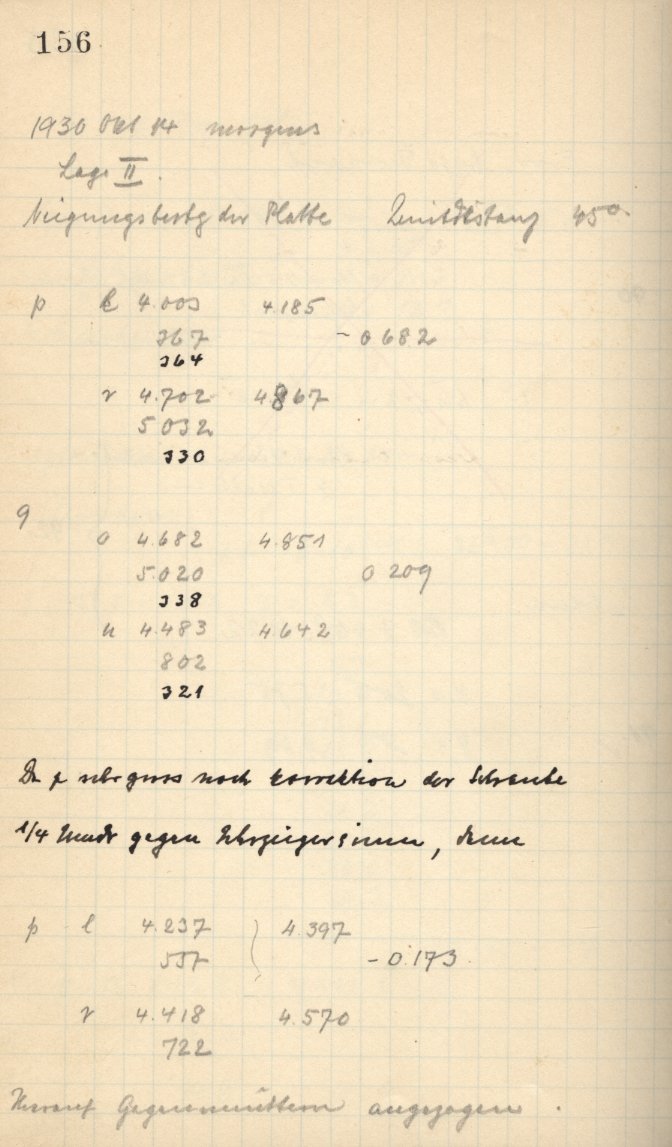 156
1930 Okt 14 morgens
Lage II.
Neigungsbestg der Platte Zenitdistanz 45°
p l 4.003 4.185
367 - 0 682
364
r 4.702 4.867
5 032
330
q
o 4.682 4.851
5.020 0 209
338
u 4.483 4.642
802
321
Da p sehr gross noch Korrektion der Schraube
1/4 gegen Uhrzeigersinn, dann
p l 4.237 4.397
557 - 0.173
r 4.418 4.570
722
Hierauf Gegenmuttern angezogen.